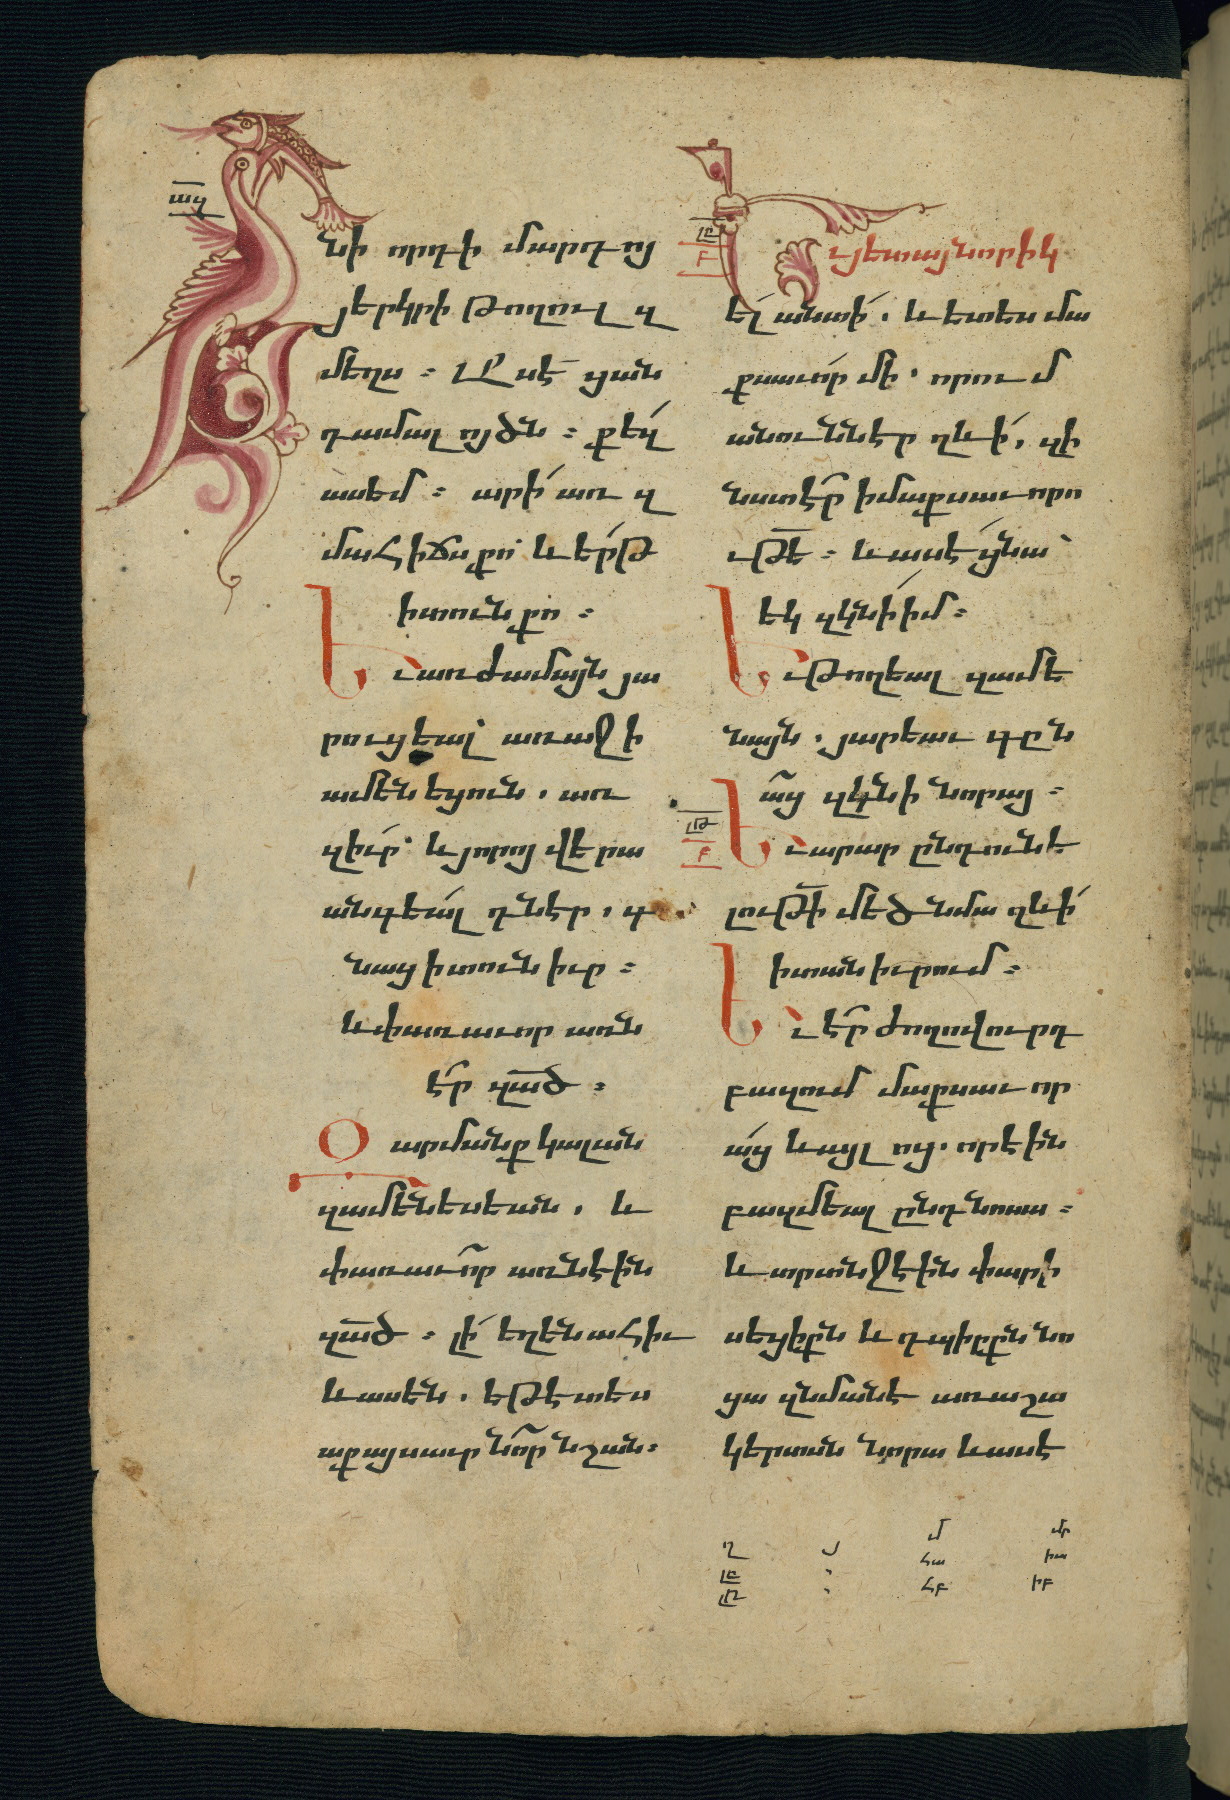 նի որդի մարդոյ
յերկրի թողուլ զ
մեղս ։ Ասէ ցան
դամալոյծն ։ քեզ
ասեմ ։ արի առ զ
մահիճս քո և երթ
ի տուն քո ։
Եւ առժամայն յա
րուցեալ առաջի
ամենեցուն . առ
զիւր և յորոյ վերա
անգեալ դնէր . գ
նաց ի տուն իւր ։
և փառաւոր առն
էր զա͞ծ ։
Զարմանք կալան
զամենեսեան . և
փառաւոր առնէին
զա͞ծ ։ լի եղեն ահիւ
և ասեն . եթէ տես
աք այսաւր նոր նշան ։
Եւ յետ այնորիկ
ել անտի . և ետես մա
քսաւոր մի . որում
անունն էր ղևի . զի
նստէր ի մաքսաւորո
ւթե͞ ։ և ասէ ցնա
եկ զկնի իմ ։
Եւ թողեալ զամե
նայն . յարեաւ գըն
աց զկնի նորայ ։
Եւ արար ընդունե
լութի͞ մեծ նմա ղևի
ի տան իւրում ։
Եւ էր ժողովուրդ
բազում մաքսաւոր
աց և այլ ոց . որ էին
բազմեալ ընդ նոսա ։
և տրտնջէին փարի
սեցիքն և դպիրքն նո
ցա զնմանէ առ աշա
կերտսն նորա և ասէ